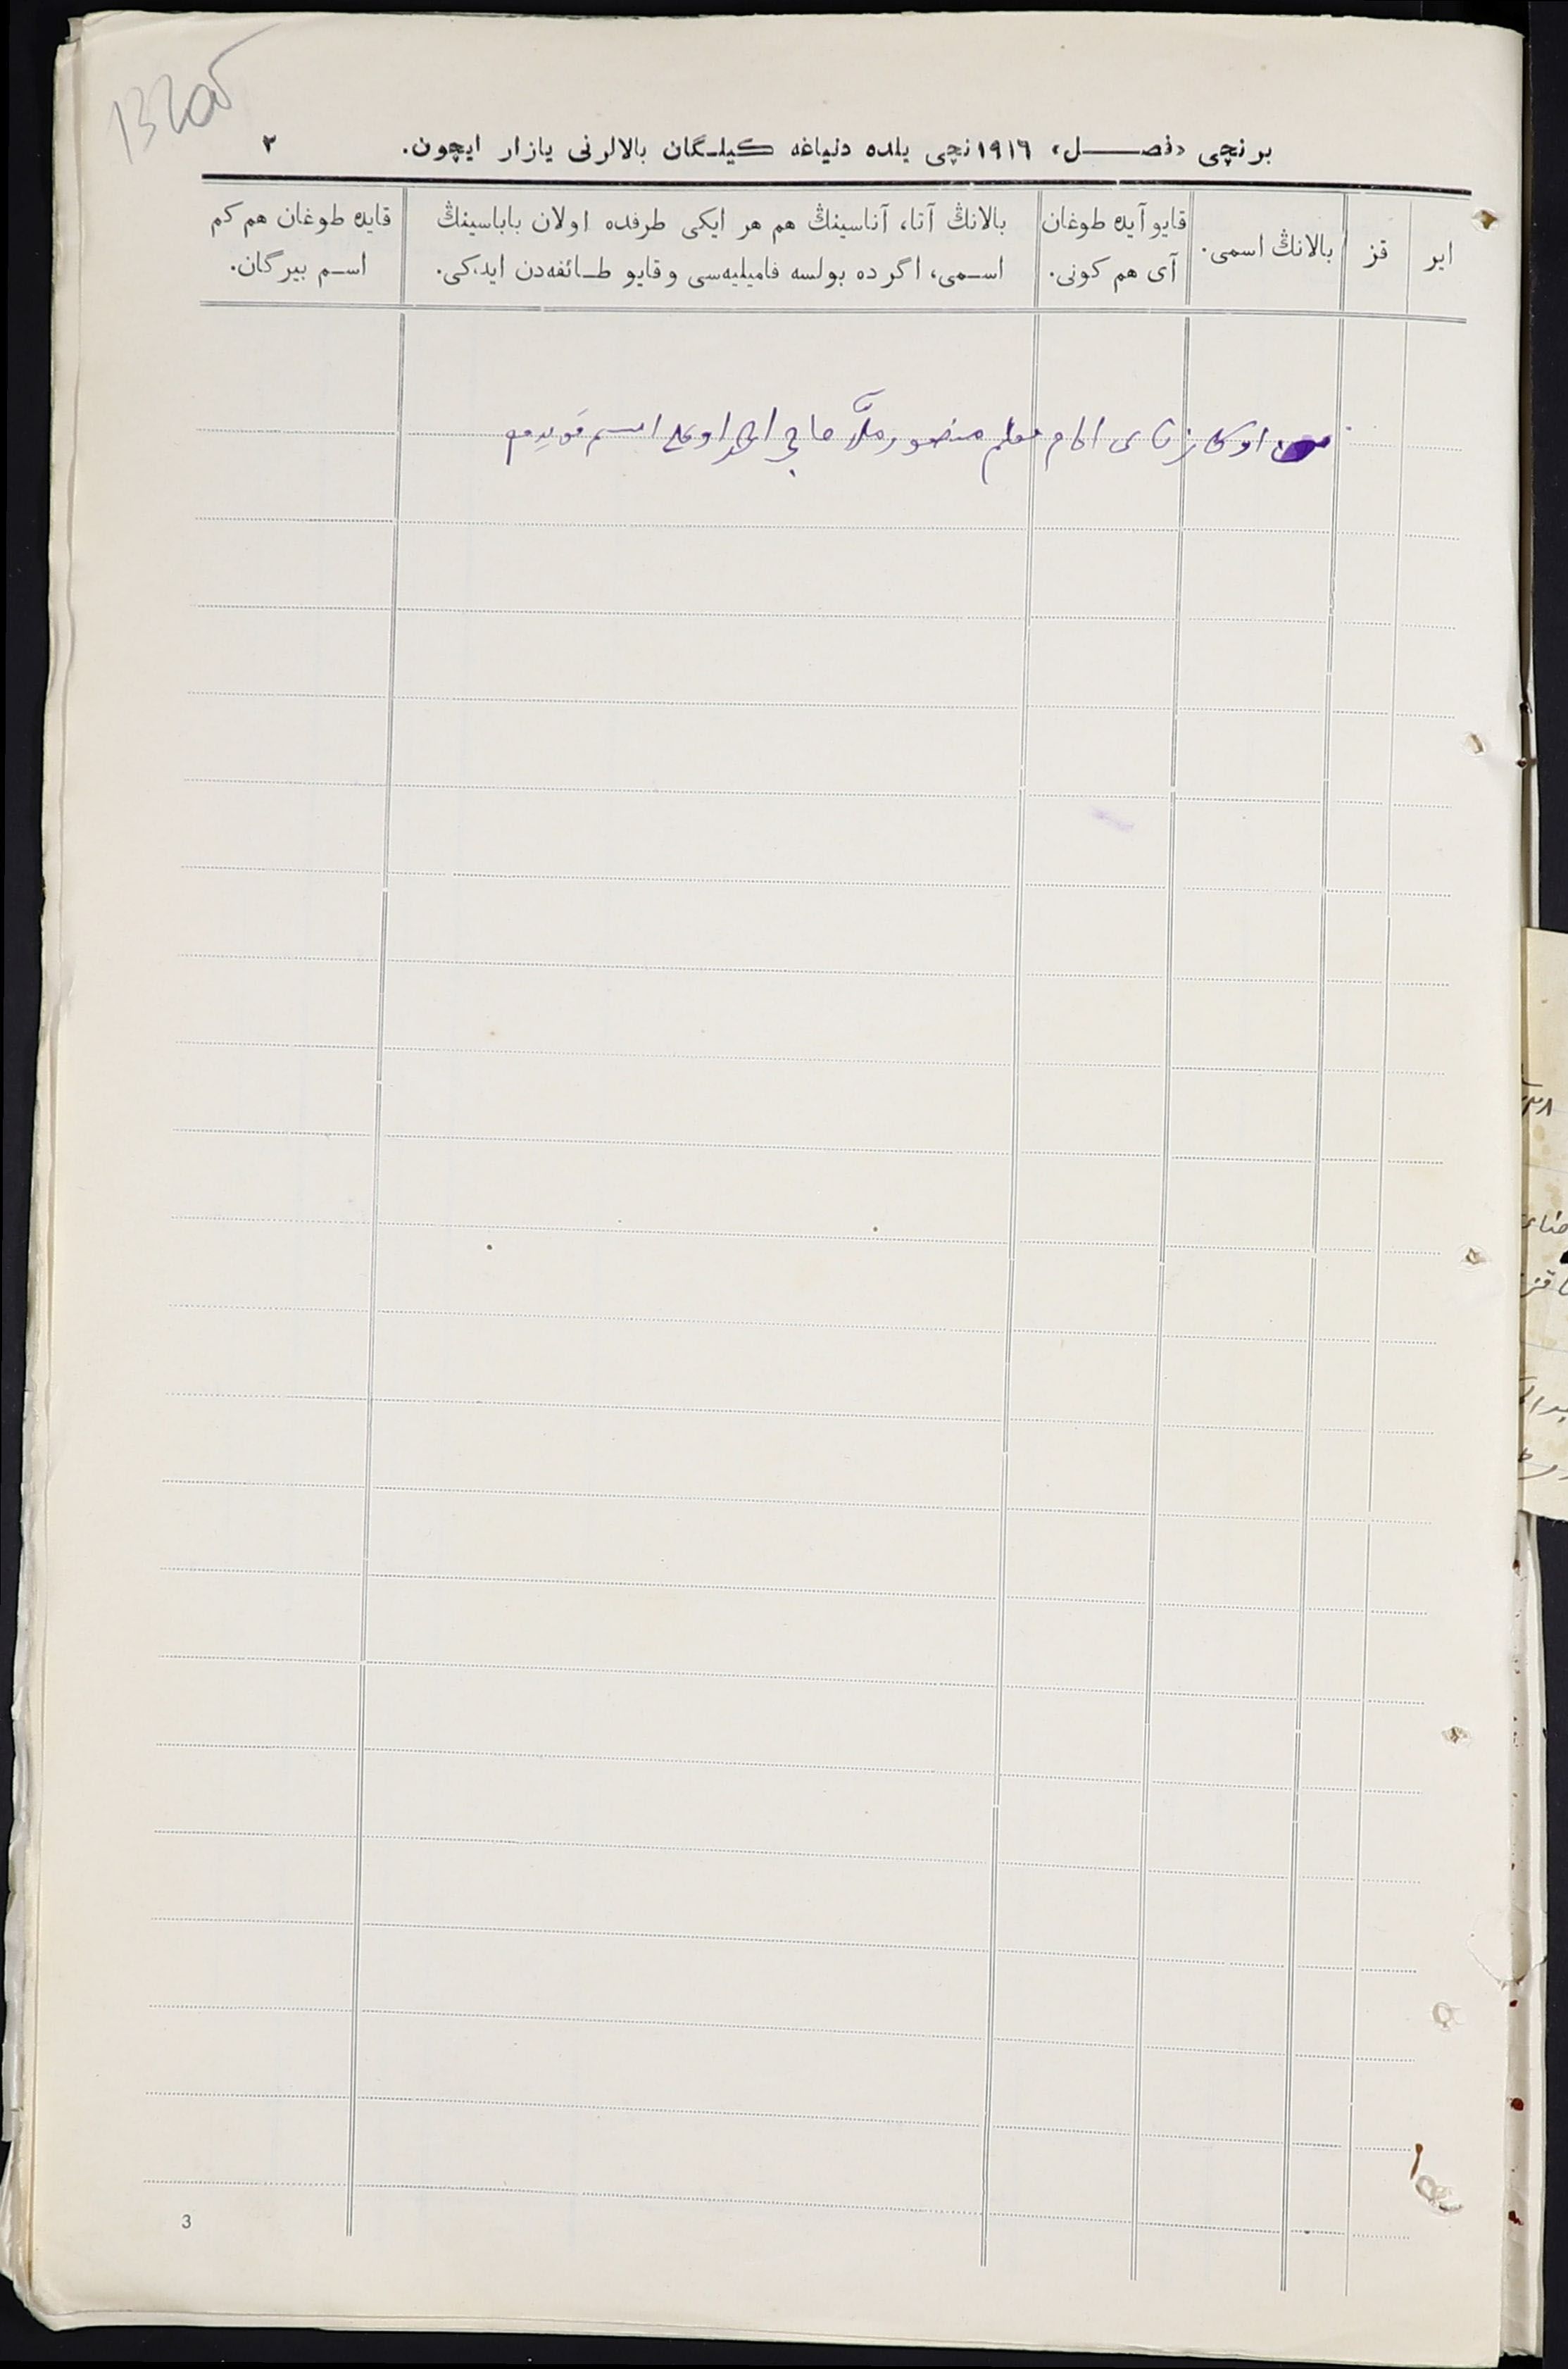 132об
برنچی «فصل» ۱۹۱۶نچی یلده دنیاغه کیلگان بالالرنی یازار ایچون. ۳
ایر
قز
بالانڭ اسمی.
قایو آیده طوغان
آی هم کونی.
بالانڭ آتا، آناسینڭ هم هر ایکی طرفده اولان باباسینڭ
اسمی، اگر ده بولسه فامیلیه‌سی و قایو طائفه‌دن ایدکی.
قایده طوغان هم کم
اسم بیرگان.
امام معلم منصور ملّا حاجی احمد اوغلی اسم قویدم
3